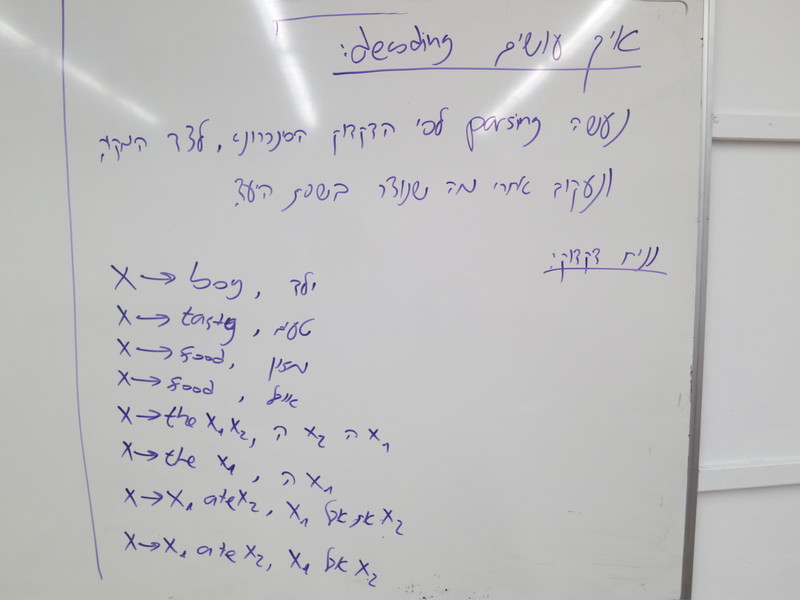 איך עושים decoding:
נעשה parsing לפי הדקדוק הסנכרוני, לצד המקור,
ונעקוב אחרי מה שנוצר בשפת היעד.
נניח דקדוק:
X → boy, ילד
X → tasty, טעים
X → food, מזון
X → food, אוכל
X → the X₁ X₂, ה X₂ ה X₁
X → the X₁, ה X₁
X → X₁ ate X₂, X₁ אכל את X₂
X → X₁ ate X₂, X₁ אכל X₂